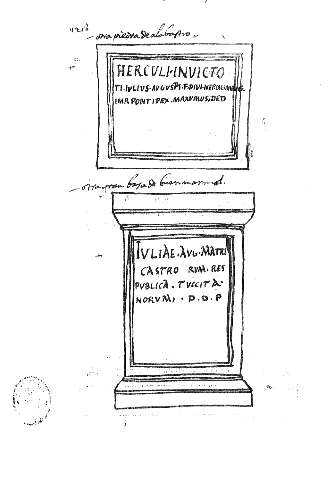 otra piedra de alabastro.
HERCULI·INVICTO
TI·IULIUS·AUGUSTI·F·DIVI·NEPOS
IMP. PONTIFEX. MAXUMUS. DED
otra gran basa de buen marmol.
IVLIAE. AUG. MATRI
CASTRO RUM. RES
PUBLICA. TUCCITA
NORUM. D. D. P